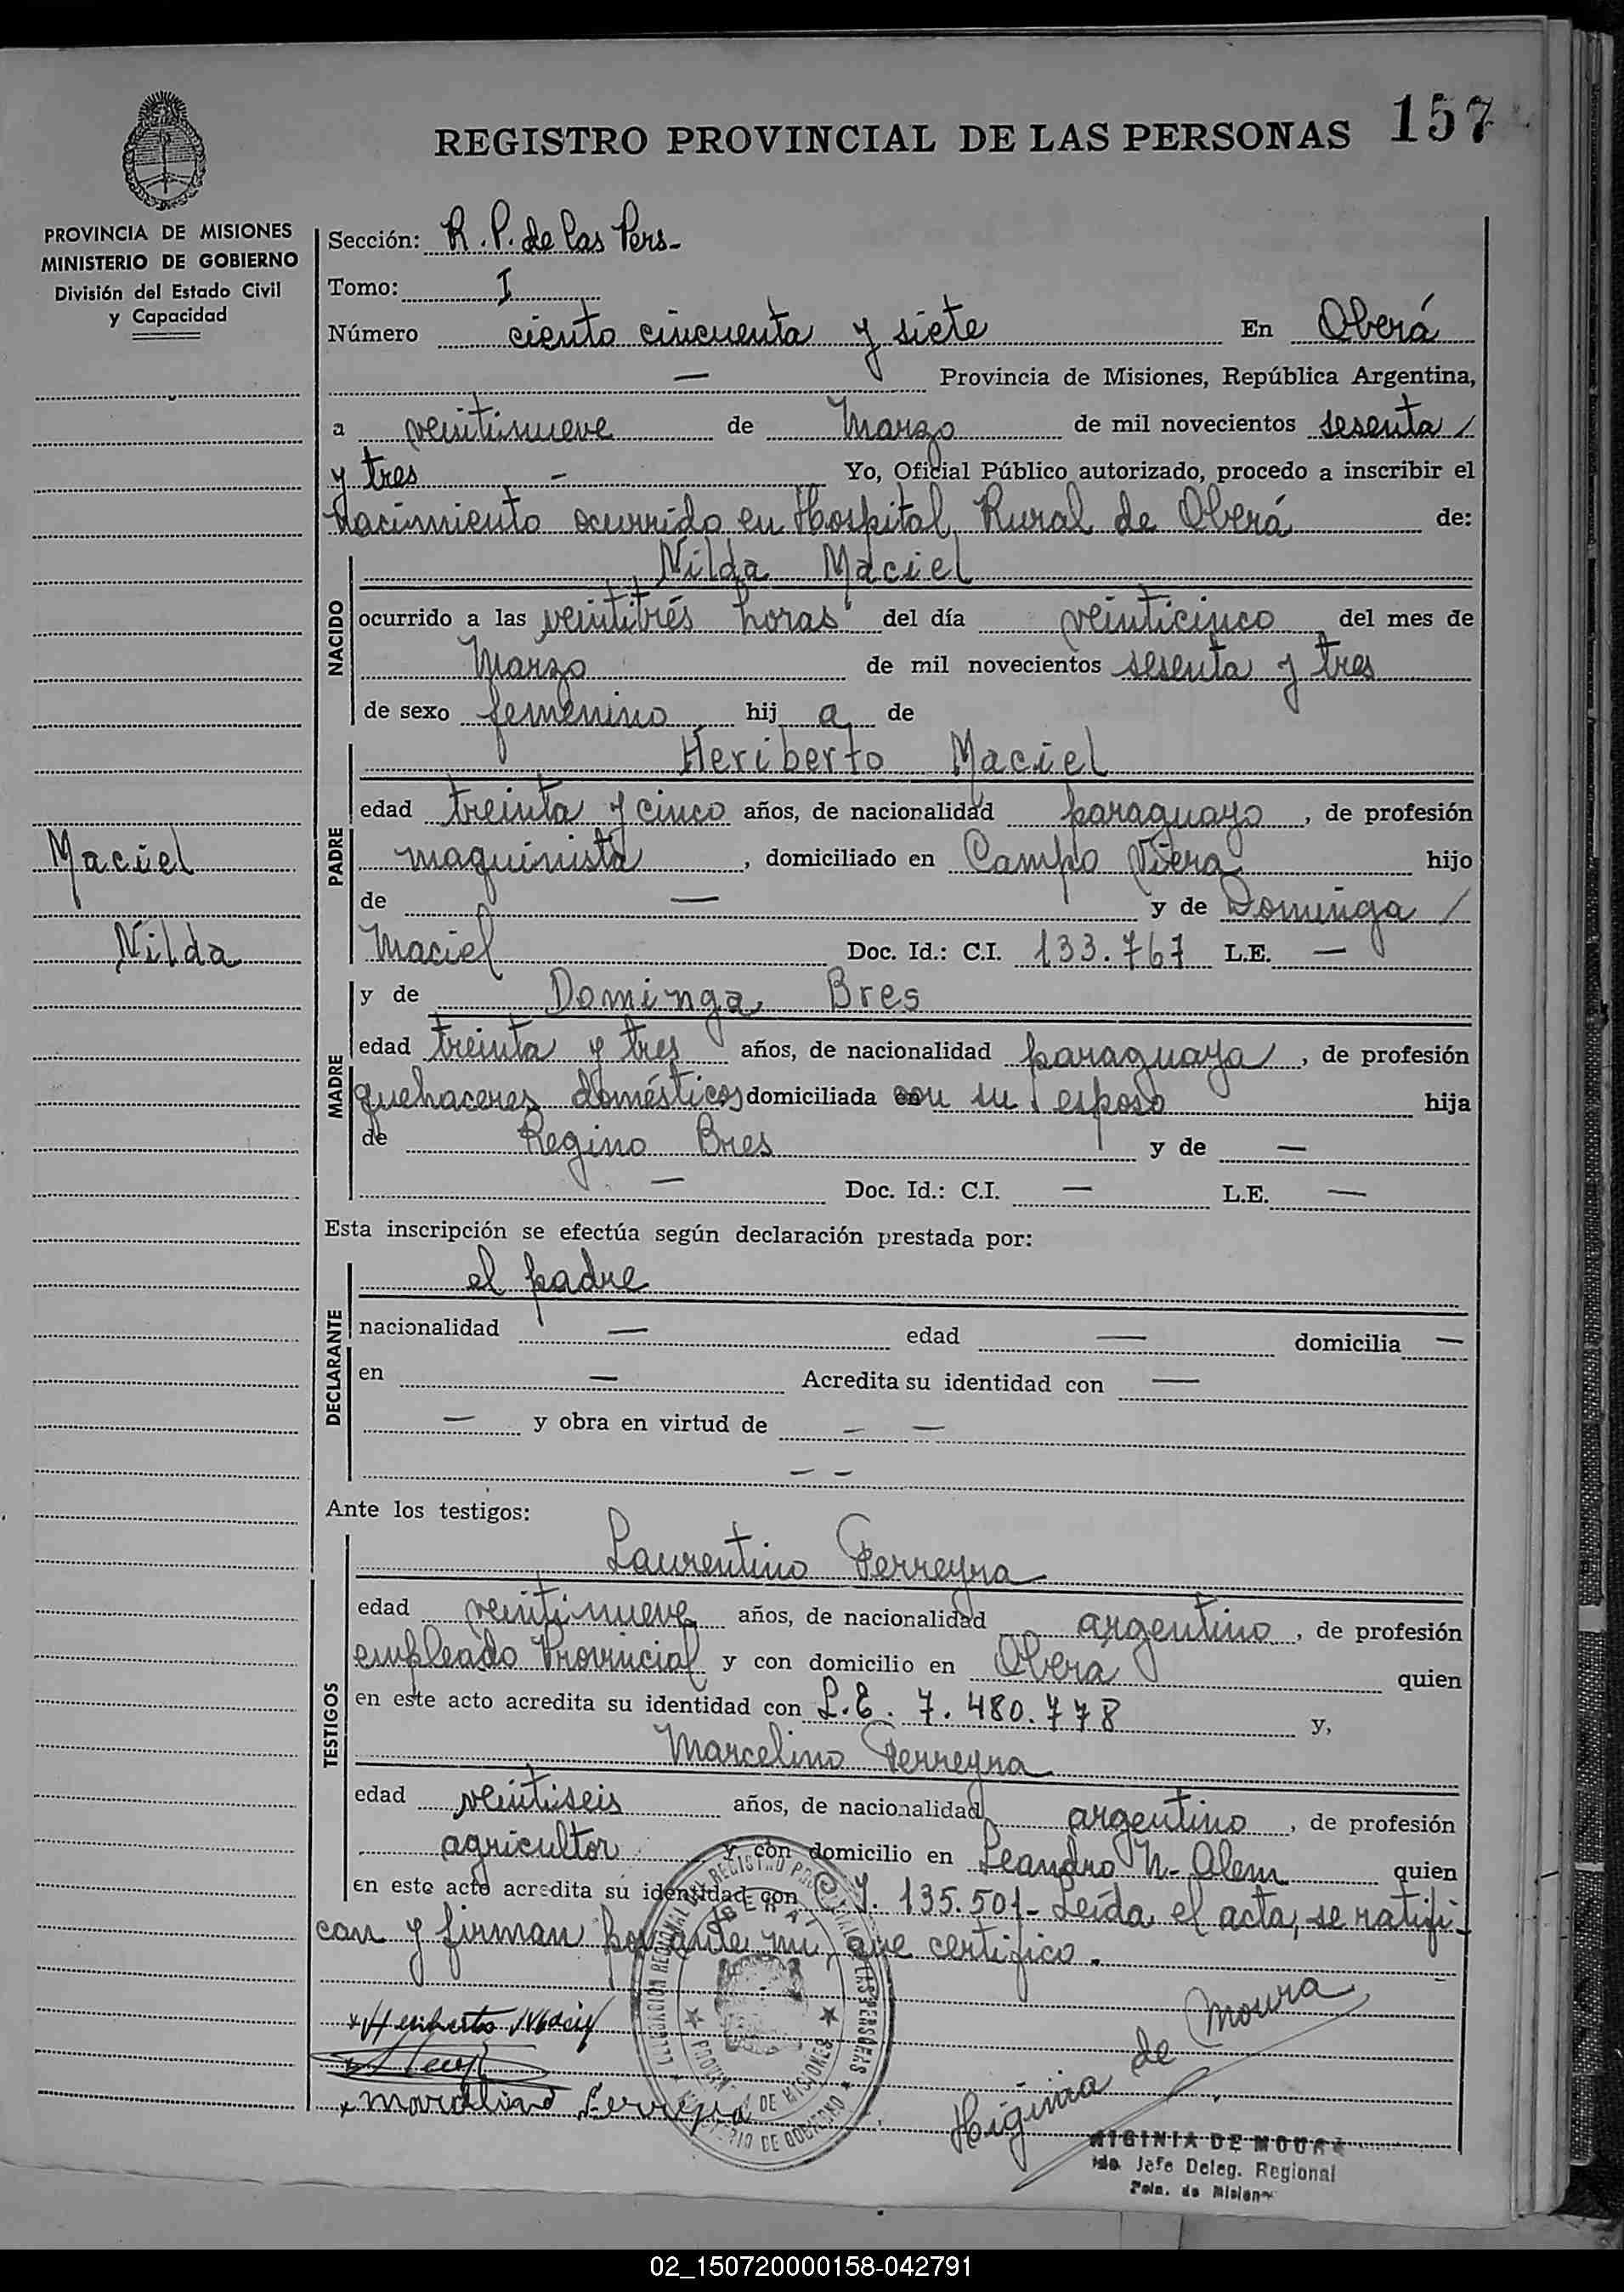 157
REGISTRO PROVINCIAL DE LAS PERSONAS
PROVINCIA DE MISIONES
MINISTERIO DE GOBIERNO
División del Estado Civil
y Capacidad
Maciel
Nilda
Sección: R. P. de las Pers-
Tomo: I
Número ciento cincuenta y siete En Oberá
— Provincia de Misiones, República Argentina,
a veintinueve de Marzo de mil novecientos sesenta /
y tres — Yo, Oficial Público autorizado, procedo a inscribir el
nacimiento ocurrido en Hospital Rural de Oberá de:
NACIDO
Nilda Maciel
ocurrido a las veintitrés horas del día veinticinco del mes de
Marzo de mil novecientos sesenta y tres
de sexo femenino hij a de
PADRE
Heriberto Maciel
edad treinta y cinco años, de nacionalidad paraguayo, de profesión
maquinista, domiciliado en Campo Viera hijo
de — y de Dominga /
Maciel Doc. Id.: C.I. 133.767 L.E. —
MADRE
y de Dominga Bres
edad treinta y tres años, de nacionalidad paraguaya, de profesión
quehaceres domésticos domiciliada con su esposo hija
de Regino Bres y de —
— Doc. Id.: C.I. — L.E. —
Esta inscripción se efectúa según declaración prestada por:
DECLARANTE
el padre
nacionalidad — edad — domicilia —
en — Acredita su identidad con —
— y obra en virtud de — —
— —
Ante los testigos:
TESTIGOS
Laurentino Ferreyra
edad veintinueve años, de nacionalidad argentino, de profesión
empleado Provincial y con domicilio en Obera quien
en este acto acredita su identidad con L.E. 7.480.778 y,
Marcelino Ferreyra
edad veintiseis años, de nacionalidad argentino, de profesión
agricultor y con domicilio en Leandro N- Alem quien
en este acto acredita su identidad con C.I. 135.501- Leída el acta, se ratifi-
can y firman por ante mi, que certifico.
x Heriberto Maciel
x Marcelino Ferreyra
Higinia de Moura
HIGINIA DE MOURA
Jefe Deleg. Regional
DELEGACIÓN REGIONAL DEL REGISTRO PROVINCIAL DE LAS PERSONAS
OBERA
PROVINCIA DE MISIONES
MINISTERIO DE GOBIERNO
02_150720000158-042791